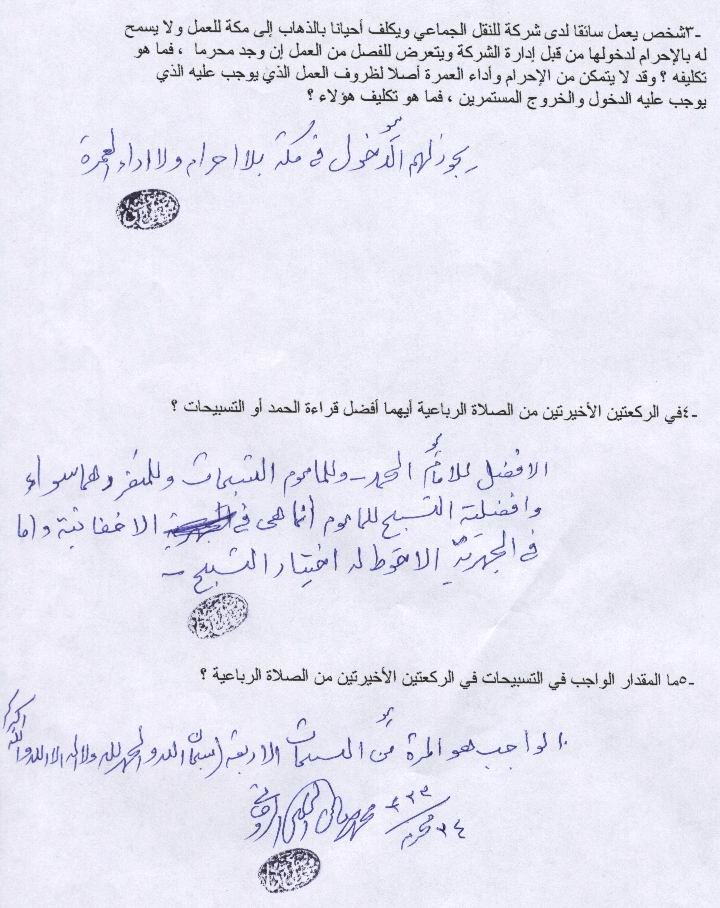 -٣شخص يعمل سائقا لدى شركة للنقل الجماعي ويكلف أحيانا بالذهاب إلى مكة للعمل ولا يسمح
له بالإحرام لدخولها من قبل إدارة الشركة ويتعرض للفصل من العمل إن وجد محرما ، فما هو
تكليفه ؟ وقد لا يتمكن من الإحرام وأداء العمرة أصلا لظروف العمل الذي يوجب عليه الذي
يوجب عليه الدخول والخروج المستمرين ، فما هو تكليف هؤلاء ؟
يجوز لهم الدخول في مكة بلا احرام ولا اداء العمرة
-٤في الركعتين الأخيرتين من الصلاة الرباعية أيهما أفضل قراءة الحمد أو التسبيحات ؟
الافضل للامام الحمد وللماموم التسبيحات وللمنفرد هما سواء
وافضلية التسبيح للماموم انما هى في الاخفاتية واما
في الجهرية الاحوط له اختيار التسبيح
-٥ما المقدار الواجب في التسبيحات في الركعتين الأخيرتين من الصلاة الرباعية ؟
الواجب هو المرة من التسبيحات الاربعة (سبحان الله والحمد لله ولا اله الا الله والله اكبر)
محرم